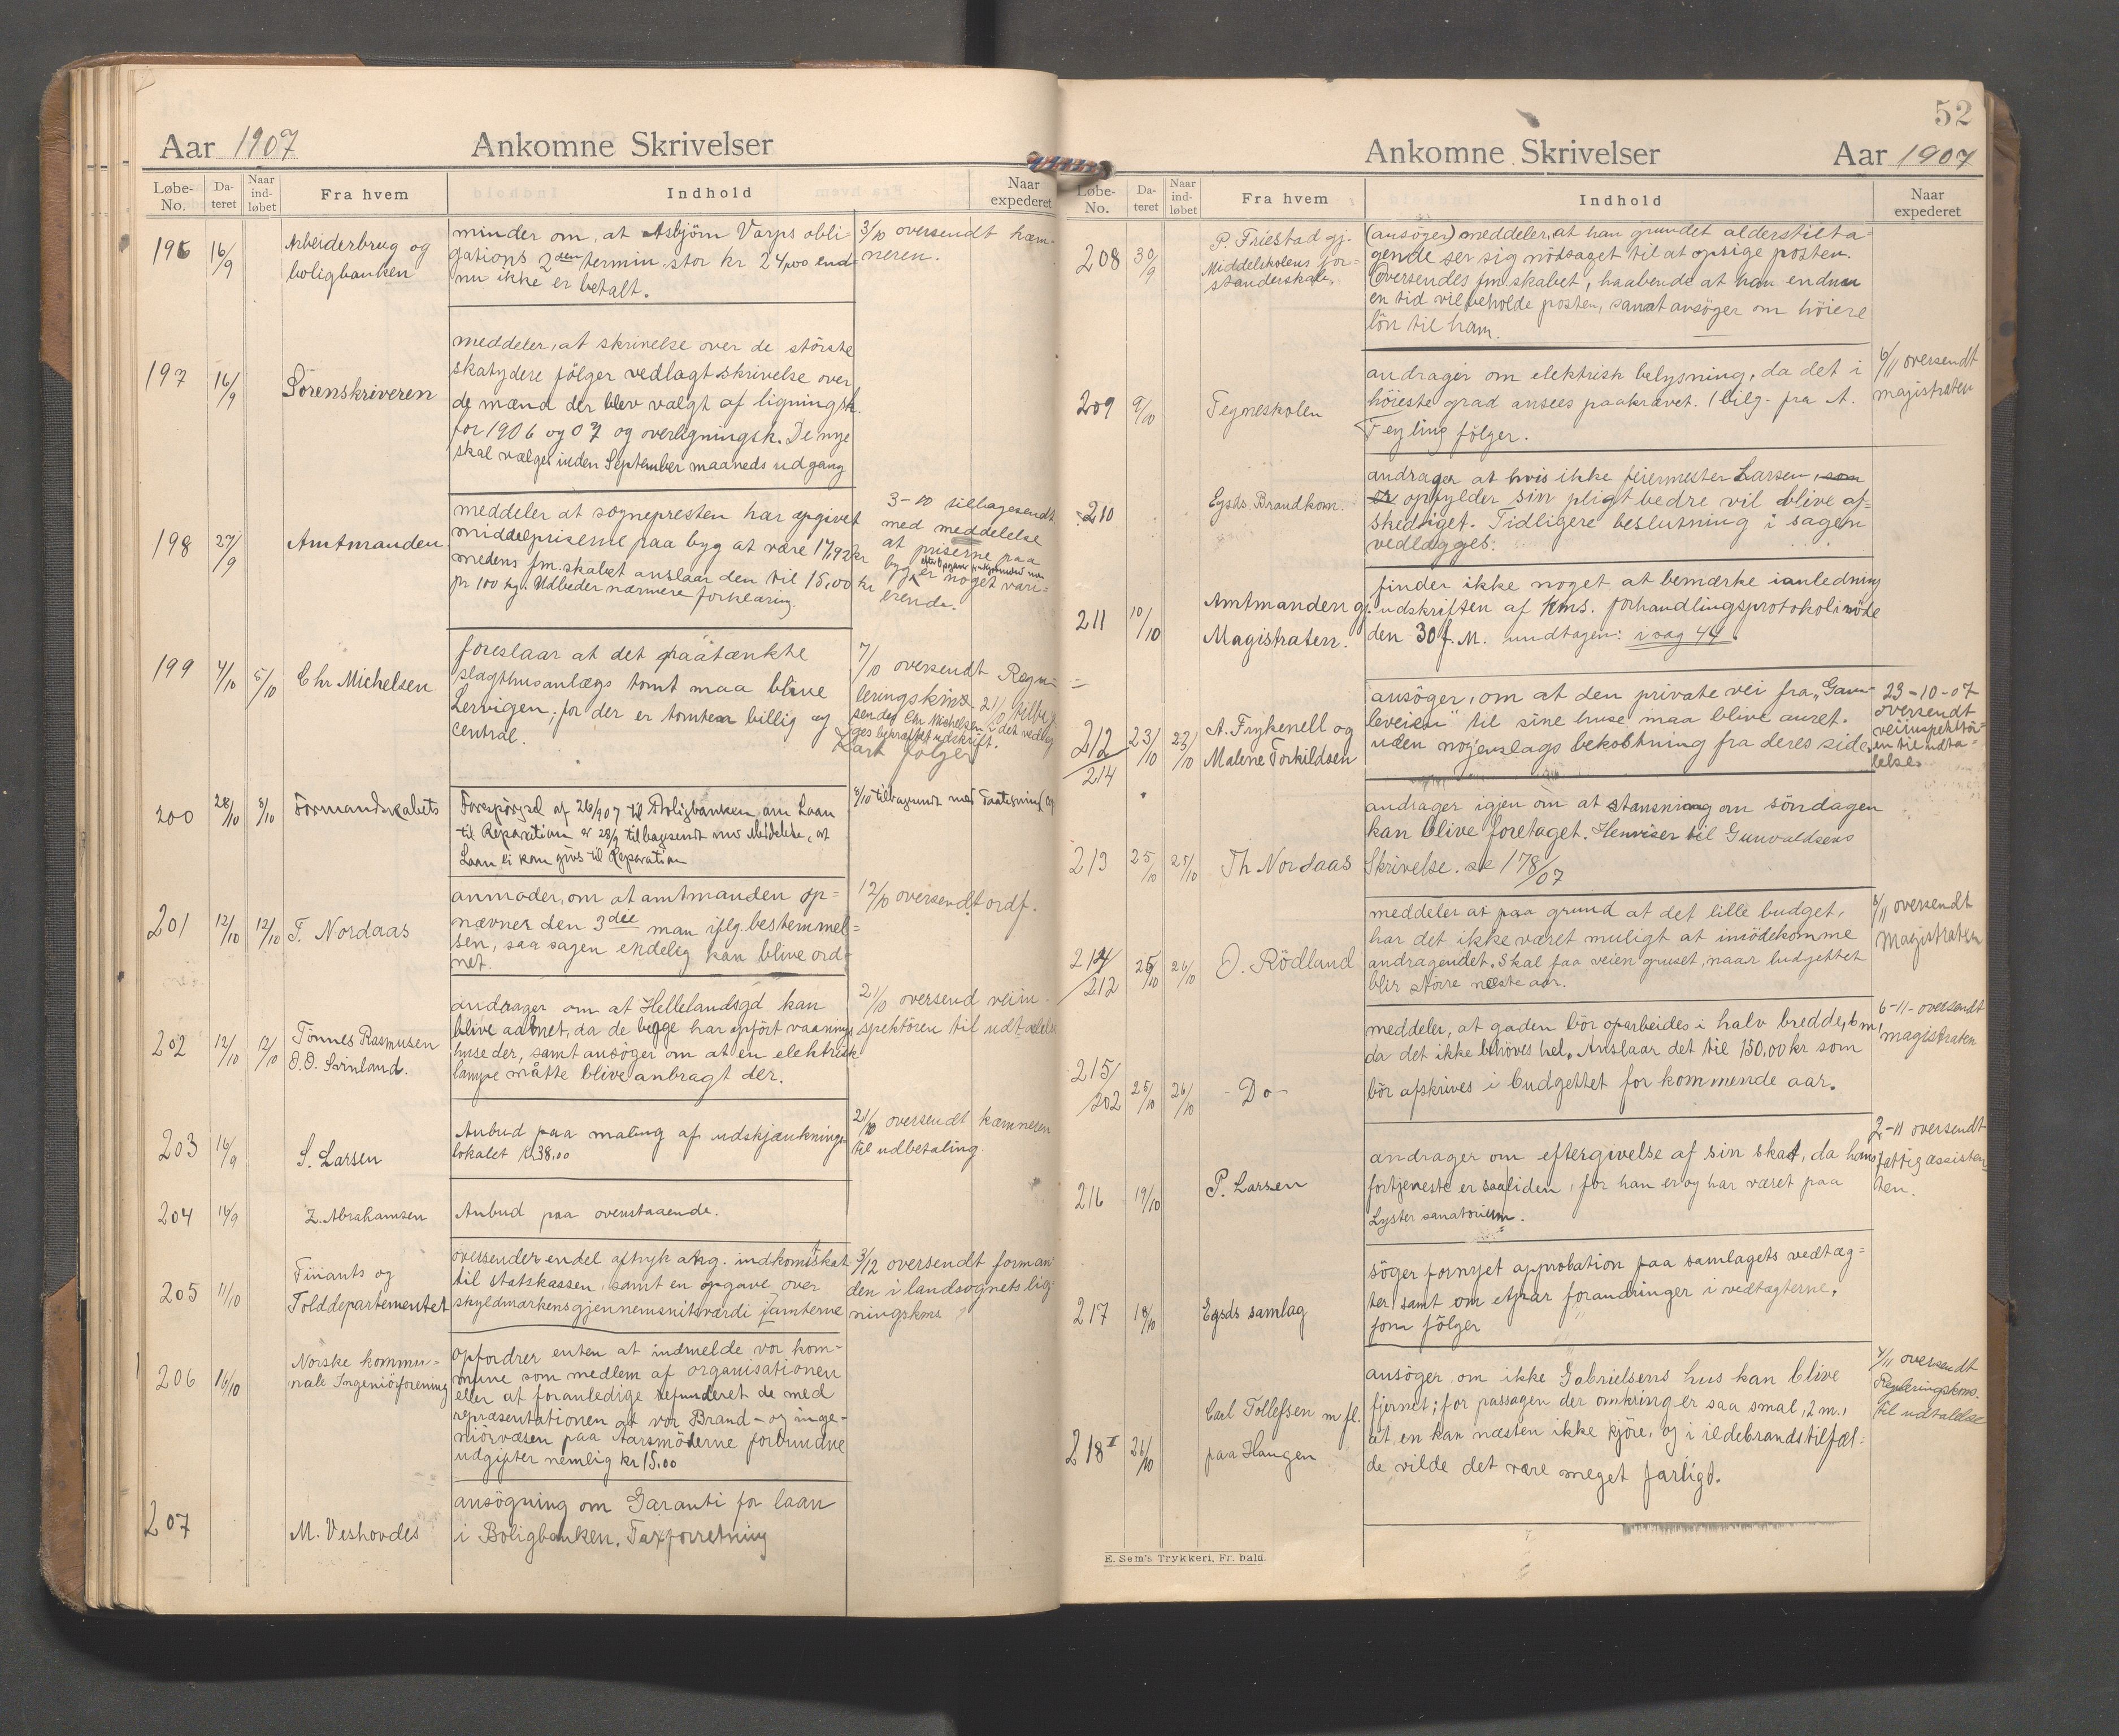 Aar 1907
Ankomne Skrivelser
Løbe-No.
Da-teret
Naar ind-løbet
Fra hvem
Indhold
Naar expederet
196
16/9
Arbeiderbrug og
boligbanken
minder om, at Asbjörn Varps obli-
gations 2den termin stor kr 24,00 end-
nu ikke er betalt.
3/10 oversendt kæm-
neren.
197
16/9
Sorenskriveren
meddeler, at skrivelse over de störste
skatydere fölger vedlagt skrivelse over
de mænd der blev valgt af ligningsk.
for 1906 og 07 og overligningsk. De nye
skal vælges inden September maaneds udgang
198
27/9
Amtmanden
meddeler at sognepresten har opgivet
middelpriserne paa byg at være 17,92 kr
medens fm.skabet anslaar den til 15,00 kr
pr 100 kg. Udbeder nærmere forklaring.
3-10 tilbagesendt
med meddelelse
at priserne paa
byg er noget vari-
erende.
199
4/10
5/10
Chr Michelsen
foreslaar at det paatænkte
slagthusanlægs tomt maa blive
Lervigen; for der er tomten billig og
central.
7/10 oversendt Regu-
leringskms. 21/10 tilbag
sendes Chr Michelsen, det vedlag
ges bekræftet udskrift.
Kart fölger
200
28/10
8/10
Formandskabets
Forespörgsel af 26/9 07 til Boligbanken, om Laan
til Reparation er 28/9 tilbagesendt med Meddelelse, at
Laan ei kan givs til Reparation
8/10 tilbagesendt med Paategning
201
12/10
12/10
T. Nordaas
anmoder, om at amtmanden op-
nævner den 3die man iflg. bestemmel-
sen, saa sagen endelig kan blive ord-
net.
12/10 oversendt ordf.
202
12/10
12/10
Tönnes Rasmusen
O.O. Svinland.
andrager om at Hellelandsgd kan
blive aabnet, da de begge har opfört vaanings
huse der, samt ansöger om at en elektrisk
lampe måtte blive anbragt der.
21/10 oversend veiin-
spektören til udtalelse
203
16/9
S. Larsen
Anbud paa maling af udskjænknings-
lokalet kr 38.00
21/10 oversendt kæmneren
til udbetaling.
204
16/9
Z. Abrahamsen
Anbud paa ovenstaaende.
205
11/10
Finants og
Tolddepartementet
oversender endel aftryk ang. indkomstskat
til statskassen, samt en opgave over
skyldmarkens gjennemsnitsværdi i amterne
3/12 oversendt forman-
den i landsognets lig-
ningskms.
206
16/10
Norske kommu-
nale Ingeniörforening
opfordrer enten at indmelde vor kom-
mune som medlem af organisationen
eller at foranledige refunderet de med
repræsentationen at vor Brand- og inge-
niörvæsen paa Aarsmöderne forbundne
udgifter nemlig kr 15.00
207
M. Veshovdes
ansögning om Garanti for laan
i Boligbanken. Taxforretning
52
Ankomne Skrivelser
Aar 1907
Løbe-No.
Da-teret
Naar ind-løbet
Fra hvem
Indhold
Naar expederet
208
30/9
P. Friestad gj.
Middelskolens for-
standerskab.
(ansöger) meddeler, at han grundet alderstilta-
gende ser sig nödsaget til at opsige posten.
Oversendes fm.skabet, haabende at han endnu
en tid vil beholde posten, samt ansöger om höiere
lön til ham.
209
9/10
Tegneskolen
andrager om elektrisk belysning, da det i
höieste grad ansees paakrævet. 1 bilg. fra A.
Feyling fölger.
6/11 oversendt
magistraten
210
Egsds. Brandkom.
andrager at hvis ikke feiermester Larsen, som
er opfylder sin pligt bedre vil blive af-
skediget. Tidligere beslutning i sagen
vedlægges.
211
10/10
Amtmanden gj.
Magistraten.
finder ikke noget at bemærke i anledning
udskriften af kms. forhandlingsprotokol i möde
den 30 f. M. undtagen: i sag 44.
212/214
23/10
23/10
A. Frykenell og
Malene Torkildsen
ansöger, om at den private vei fra "Gam-
leveien" til sine huse maa blive auret.
uden nogenslags bekostning fra deres side.
23-10-07
oversendt
veiinspektör-
en til udta-
lelse.
213
25/10
25/10
Th Nordaas
andrager igjen om at stansning om söndagen
kan blive foretaget. Henviser til Gunvaldsens
Skrivelse. se 178/07
214/212
25/10
26/10
O. Rödland
meddeler at paa grund at det lille budget,
har det ikke været muligt at imödekomme
andragendet. Skal faa veien gruset, naar budgettet
blir större næste aar.
8/11 oversendt
Magistraten
215/202
25/10
26/10
- Do -
meddeler, at gaden bör oparbeides i halv bredde, 6 m,
da det ikke behöves hel. Anslaar det til 150,00 kr som
bör afskrives i budgettet for kommende aar.
6-11- oversendt
magistraten
216
19/10
P. Larsen
andrager om eftergivelse af sin skat, da hans
fortjeneste er saa liden, for han er og har været paa
Lyster sanatorium.
2-11 oversendt
fattigassisten-
ten.
217
18/10
Egsds samlag
söger fornyet approbation paa samlagets vedtæg-
ter, samt om et par forandringer i vedtægterne,
som fölger
218
26/10
Carl Tollefsen m fl.
paa Haugen
ansöger om ikke Gabrielsens hus kan blive
fjernet; for passagen der omkring er saa smal, 2 m.,
at en kan næsten ikke kjöre, og i ildebrandstilfæl-
de vilde det være meget farligt.
4/11 oversendt
Reguleringskms.
til udtalelse
E. Sem's Trykkeri, Fr. hald.